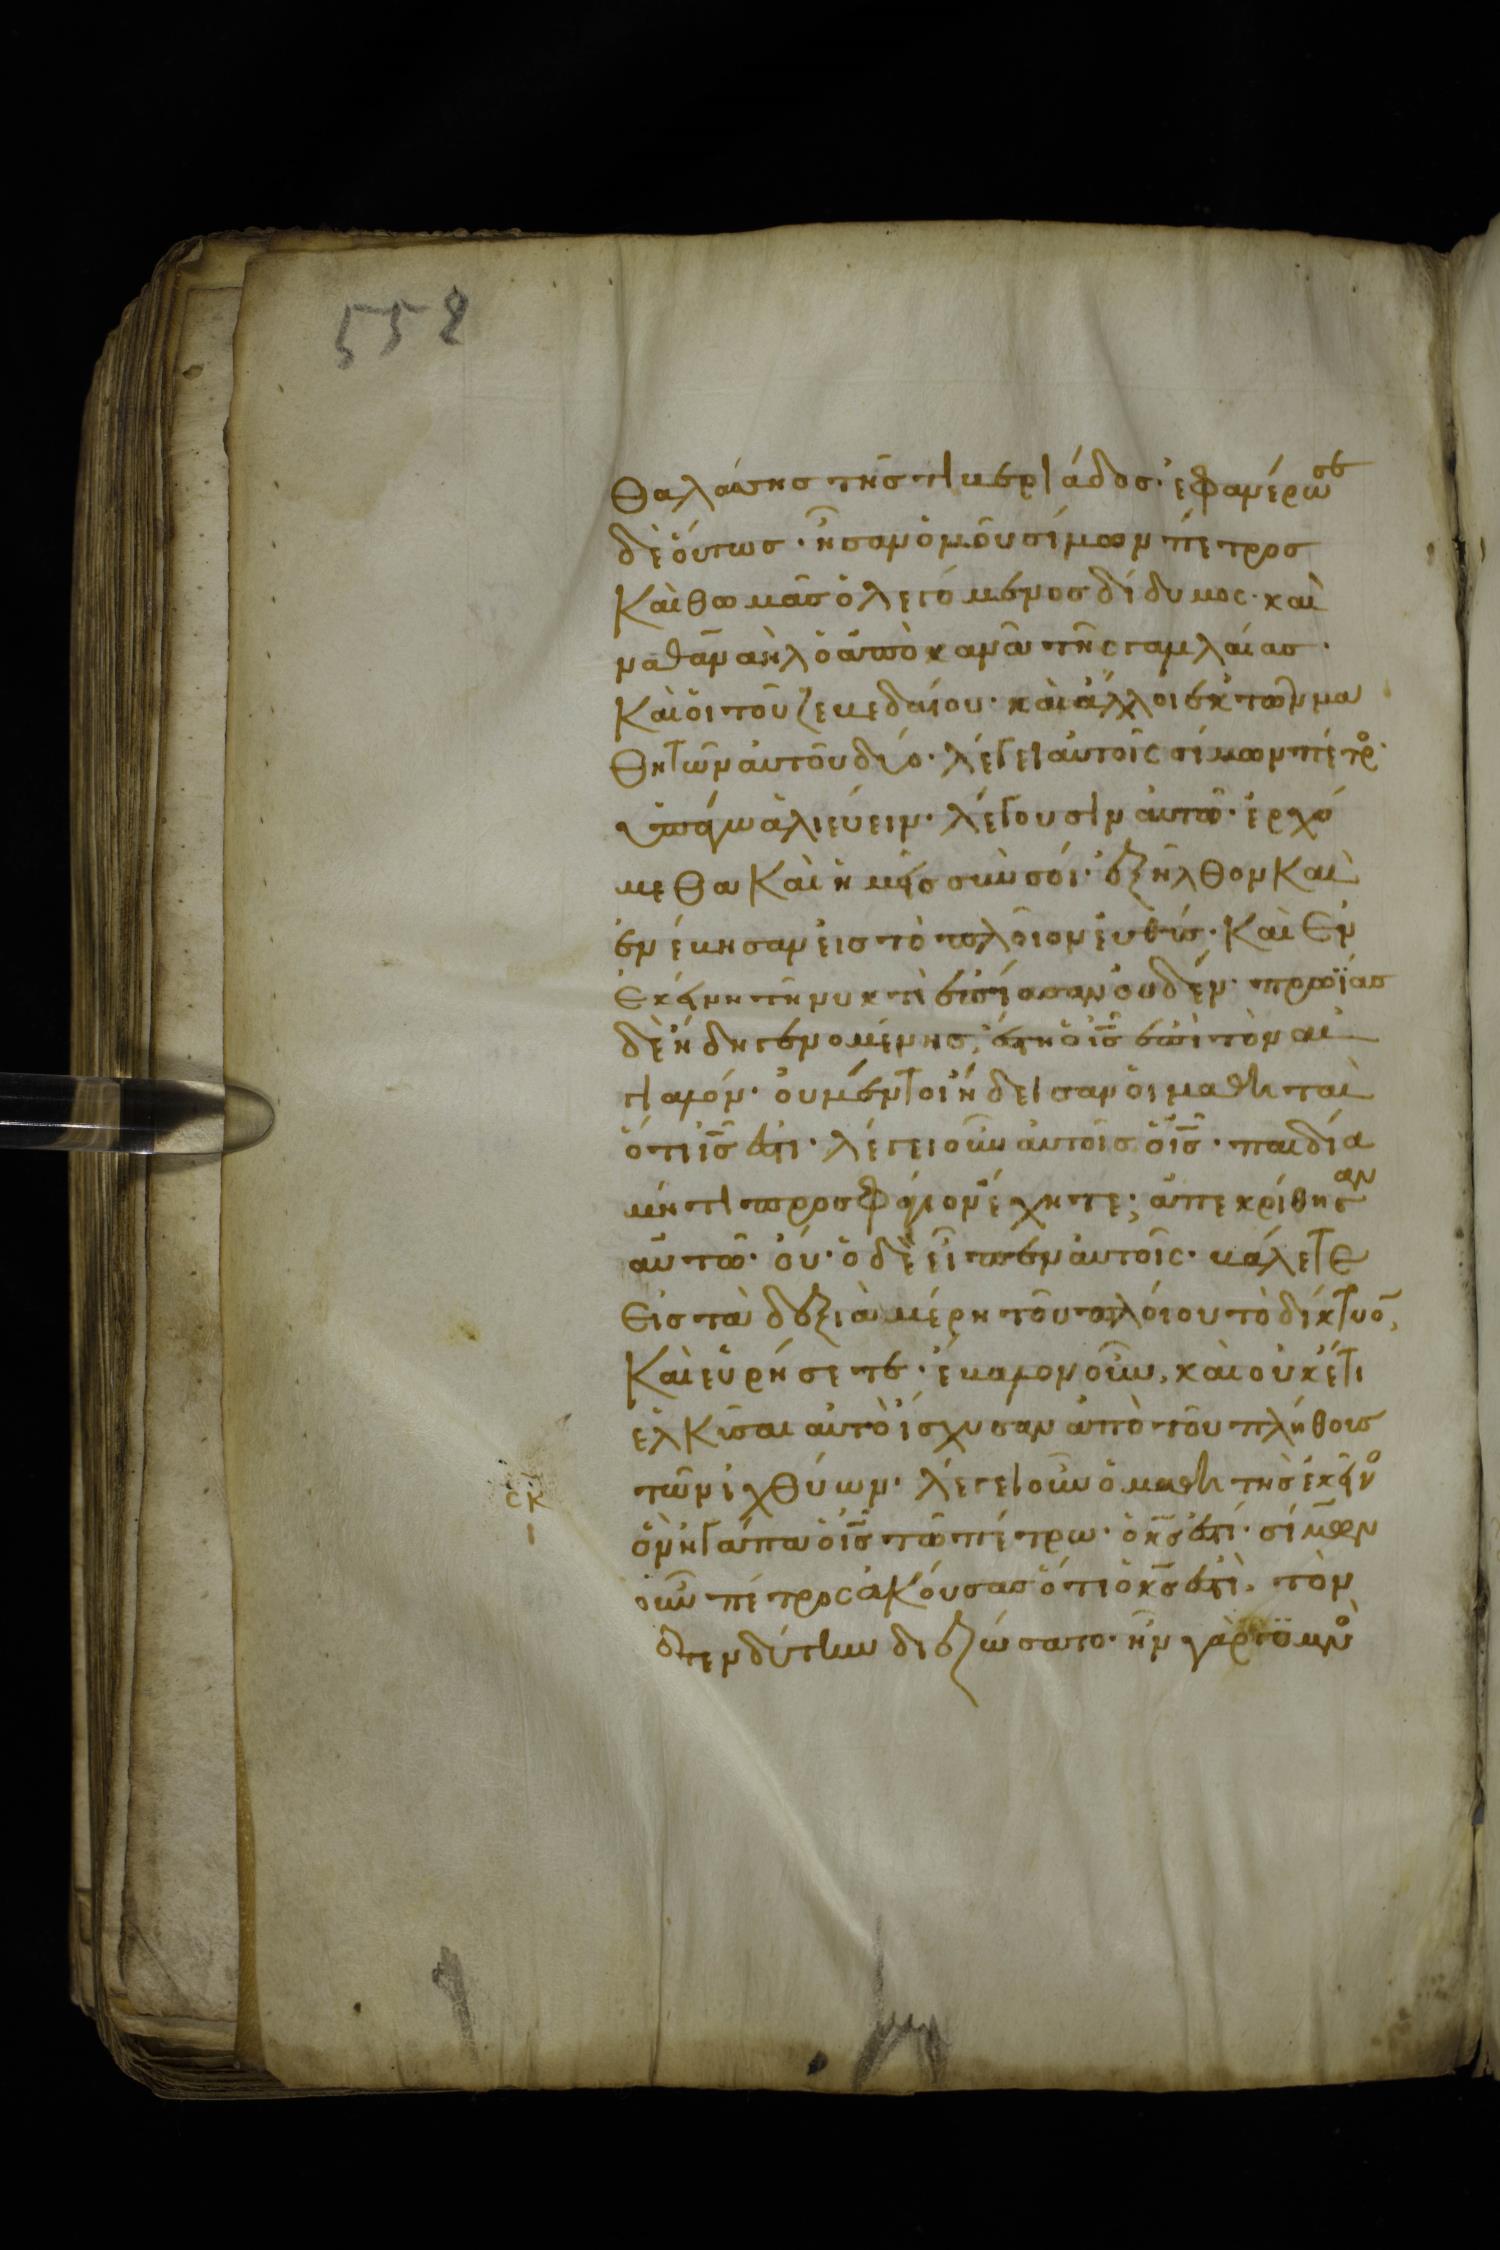 558
θαλάσσης τῆς τιβεριάδος· ἐφανέρωσε
δὲ ὅυτως· ἦσαν ὁμοῦ σίμων πέτρος
Καὶ θωμᾶς ὁ λεγόμενος δίδυμος· καὶ
ναθαναὴλ ὁ ἀπὸ κανᾶ τῆς γαλιλαίας·
Καὶ ὁι τοῦ ζεβεδαίου· καὶ ἄλλοι ἐκ τῶν μα
θητῶν ἀυτοῦ δύο· λέγει ἀυτοῖς σίμων πέτρ
ὑπάγω ἁλιεύειν· λέγουσιν ἀυτῶ· ἐρχό
μεθα Καὶ ἡμεῖς σὺν σόι· ἐξῆλθον Καὶ
ἐνέβησαν ἐις τὸ πλοῖον ἐυθύς· Καὶ ἐν
ἐκείνη τῆ νυκτὶ ἐπίασαν ὀυδέν· πρωΐας
δὲ ἤδη γενομένης, ἔστη ὁ ις ἐπὶ τὸν αἰ
γιαλόν· ὀυ μέντοι ἤδεισαν ὁι μαθηταὶ
ὅτι ις ἐστι· λέγει οὖν ἀυτοῖς ὁ ις· παιδία
μή τι προσφάγιον ἔχητε; ἀπεκρίθησαν
ἀυτῶ· όυ· ὁ δὲ εἶπεν ἀυτοῖς· βάλετε
ἐις τὰ δεξιὰ μέρη τοῦ πλόιου τὸ δίκτυο,
Καὶ ἑυρήσετε· ἔβαλον οὖν, καὶ οὐκέτι
ἑλκῦσαι ἀυτὸ ἴσχυσαν ἀπὸ τοῦ πλήθους
τῶν ἰχθύων· λέγει οὖν ὁ μαθητὴς ἐκεῖνο
ςκ
ι
ὃν ἠγάπα ὁ ις τῶ πέτρω· ὁ κς ἐστί· σίμων
οὖν πέτρος ἀκόυσας ὅτι ὁ κς ἐστὶ, τὸν
ἐπενδύτην διεζώσατο· ἦν γὰρ γυμνὸ